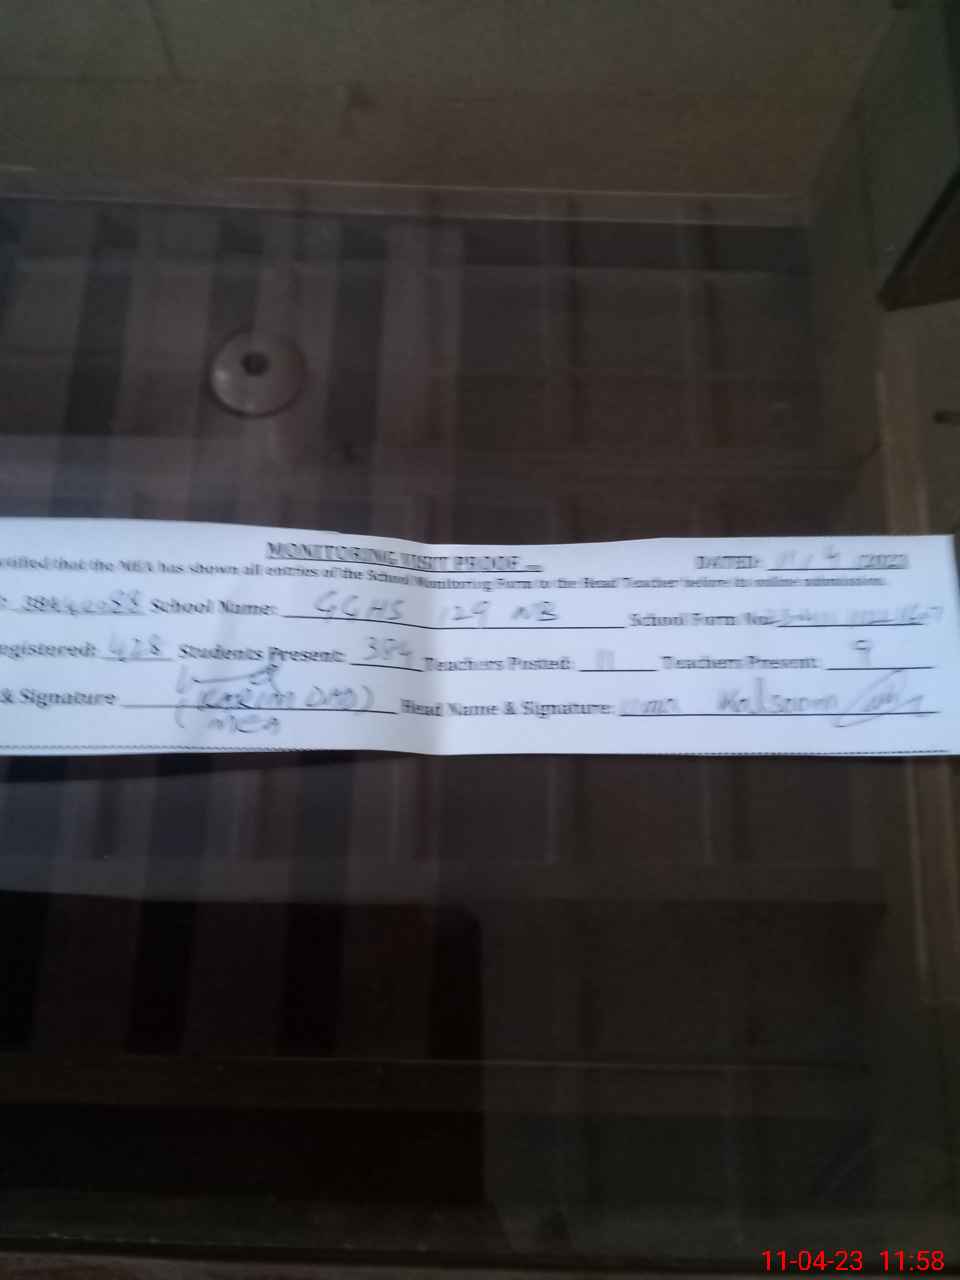 MONITORING VISIT PROOF DATED: 11/4/2023
that the MEA has shown all entries of the School Monitoring Form to the Head Teacher before its online submission.
School Name: GGHS 129 NB School Form No:
egistered: 428 Students Present: 384 Teachers Posted: 11 Teachers Present: 9
& Signature (KARIM DAD) Head Name & Signature: Kalsoom
(MEA
11-04-23 11:58